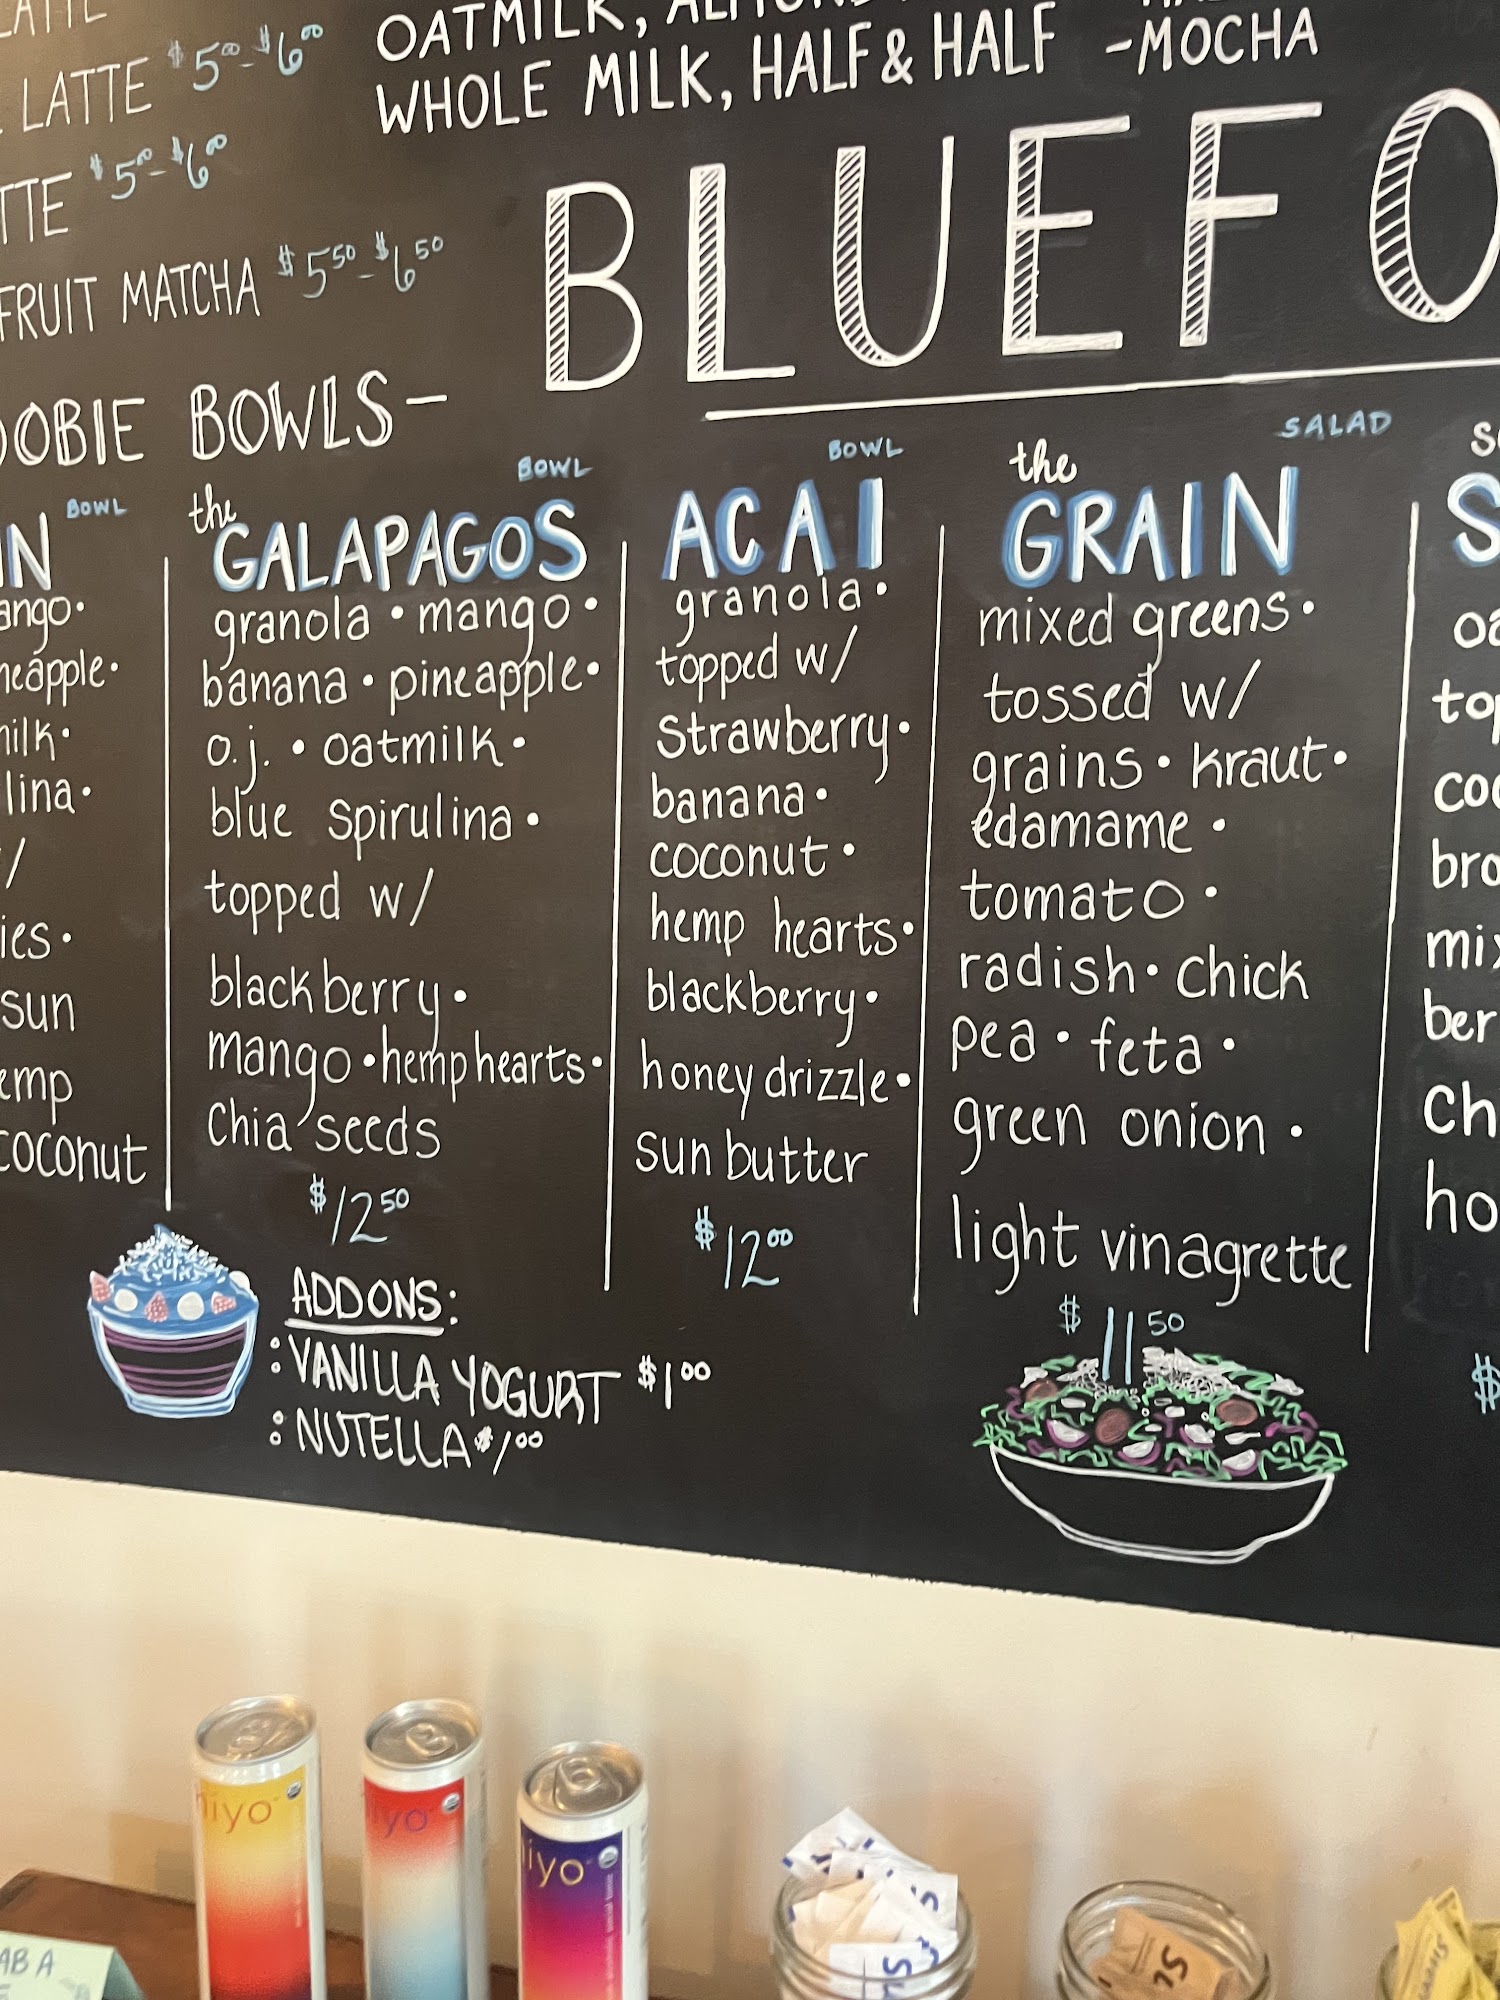 LATTE $5.00-$6.00
$5.00-$6.00
FRUIT MATCHA $5.50-$6.50
OATMILK,
WHOLE MILK, HALF & HALF -MOCHA
BLUEFO
BOWLS-
BOWL
ango.
milk.
sun
coconut
BOWL
the
GALAPAGOS
granola • mango •
banana • pineapple •
o.j. • oatmilk •
blue spirulina •
topped w/
blackberry •
mango • hemp hearts •
Chia seeds
$12.50
ADDONS:
: VANILLA YOGURT $1.00
: NUTELLA $1.00
BOWL
ACAI
granola •
topped w/
Strawberry •
banana •
coconut •
hemp hearts •
blackberry •
honey drizzle •
sun butter
$12.00
SALAD
the
GRAIN
mixed greens •
tossed w/
grains • kraut •
edamame •
tomato •
radish • chick
pea • feta •
green onion •
light vinagrette
$11.50
hiyo
hiyo
hiyo